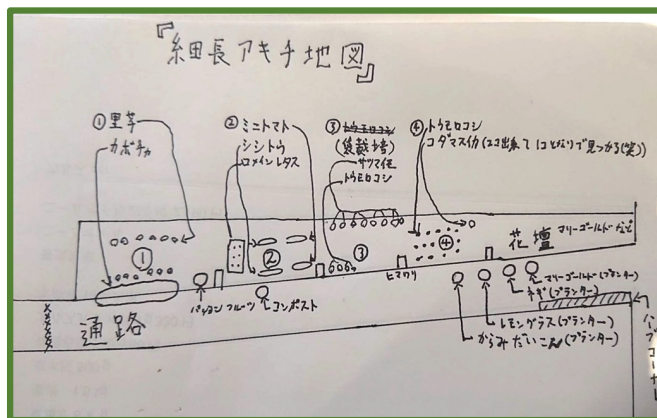 『細長アキチ地図』
①里芋
カボチャ
②ミニトマト
シシトウ
ロメインレタス
③トウモロコシ
(袋栽培)
サツマイモ
トウモロコシ
④トウモロコシ
コダマスイカ(2コ出来て1コとなりで見つかる(笑))
①
②
③
④
花壇 マリーゴールドなど
パッションフルーツ
コンポスト
ヒマワリ
マリーゴールド(プランター)
ネギ(プランター)
レモングラス(プランター)
からみだいこん(プランター)
通路
ハーブコーナー